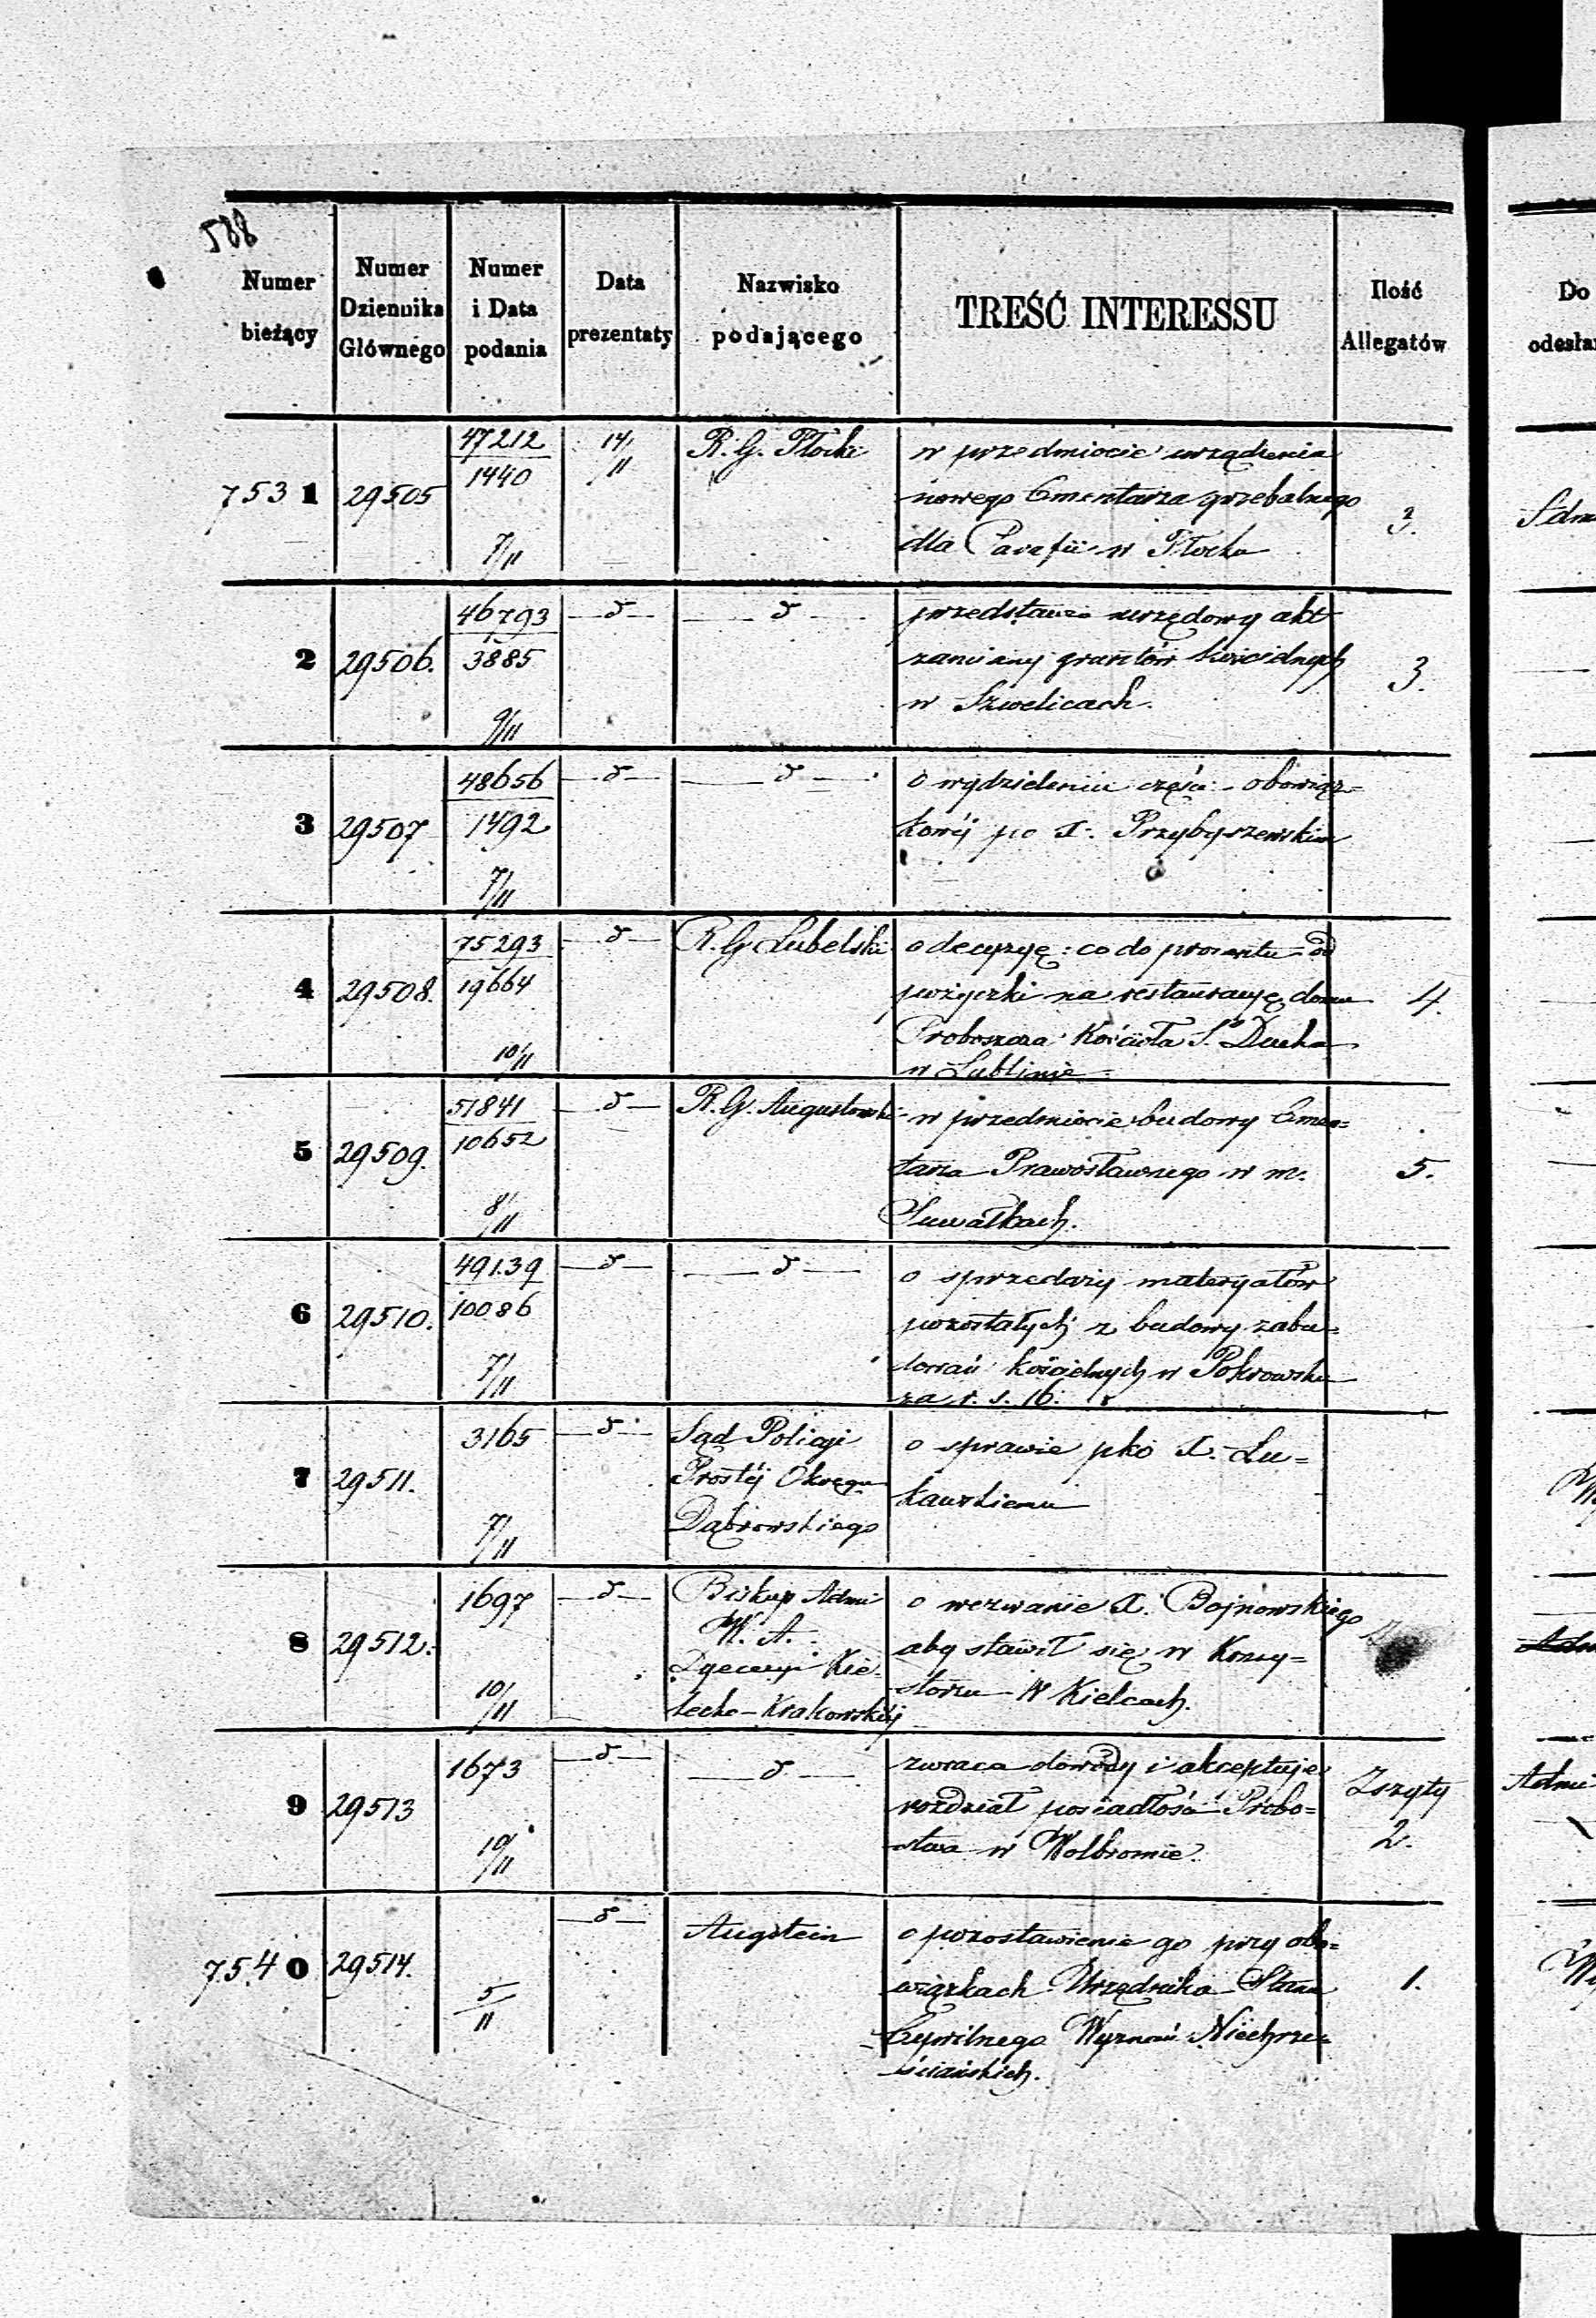 588
Numer bieżący
Numer Dziennika Głównego
Numer i Data podania
Data prezentaty
Nazwisko podającego
TREŚĆ INTERESSU
Ilość Allegatów
Do
odesła
7531 29505 47212/1440 7/11 14/11 R. G. Płocki
w przedmiocie urządzenia
nowego Cmentarza grzebalnego
dla Parafii w Płocku
3.
2 29506. 46793/3885 9/11 —d— —d—
przedstawia urzędowy akt
zamiany gruntów kościelnych
w Szwelicach.
3.
3 29507 48656/1492 7/11 —d— —d—
o wydzieleniu części obowiąz=
kowéj po X. Przybyszewskim
4 29508. 75293/19664 10/11 —d— R. G. Lubelski
o decyzyę co do procentu od
pożyczki na restauracyę domu
Proboszcza Kościoła Sgo Ducha
w Lublinie
4.
5 29509. 51841/10652 8/11 —d— R. G. Augustowski
w przedmiocie budowy Cmen=
tarza Prawosławnego w m.
Suwałkach.
5.
6 29510. 49139/10086 7/11 —d— —d—
o sprzedaży materyałów
pozostałych z budowy zabu=
dowań kościelnych w Pokrowsku
za r. s. 16.
7 29511. 3165 7/11 —d—
Sąd Policyi
Prostéj Okręgu
Dąbrowskiego
o sprawie pko X. Lu=
kawskiemu
8 29512. 1697 10/11 —d—
Biskup Admi
W. A.
Dyecezyi Kie=
lecko-Krakowskiéj
o wezwanie X. Bojnowskiego
aby stawił się w Konsy=
storzu w Kielcach.
9 29513 1673 10/11 —d— —d—
zwraca dowody i akceptuje
rozdział posiadłości Probo=
stwa w Wolbromie.
Zszyty
2.
7540 29514. 5/11 —d— Augstein
o pozostawienie go przy obo=
wiązkach Urzędnika Stanu
Cywilnego Wyznań Niechrze=
ściańskich.
1.